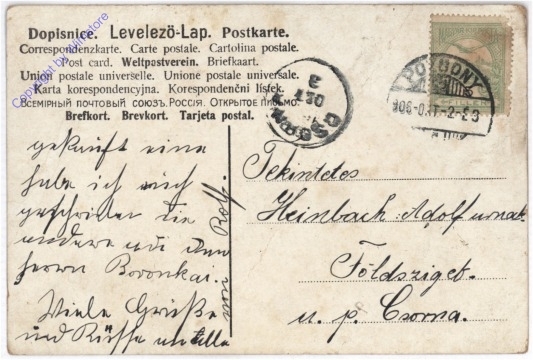 Dopisnice. Levelezö-Lap. Postkarte.
Correspondenzkarte. Carte postale. Cartolina postale.
Post card. Weltpostverein. Briefkaart.
Union postale universelle. Unione postale universale.
Karta korespondencyjna. Korespondenční lístek.
Всемірный почтовый союзъ. Россія. Открытое письмо.
Brefkort. Brevkort. Tarjeta postal.
POZSONY
906 OKT -2
FILLÉR
CSORNA
OKT
3
gekauft eine
habe ich mich
geschrieben die
andere
Herrn Boronkai.
Viele Grüße
und Küsse
von Rolf
Tekintetes
Heinbach Adolf urnak
Földsziget
u. p. Csorna.
Copyright by Allmistore